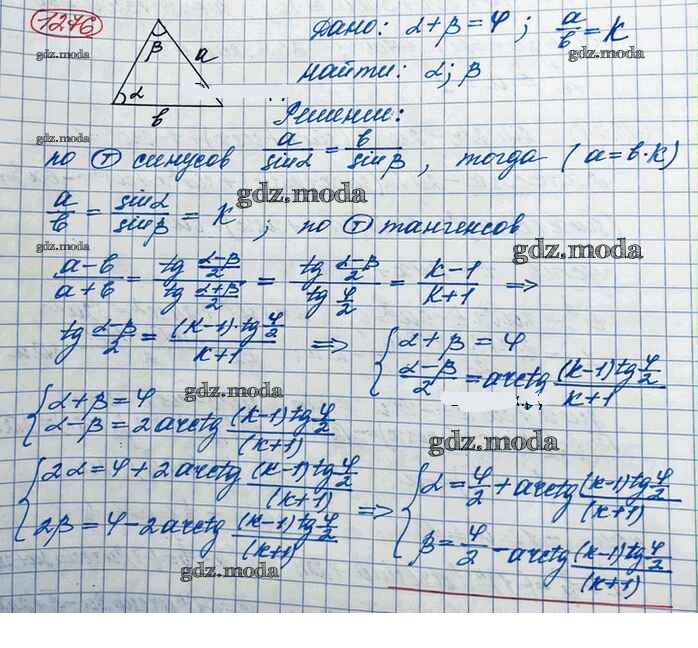 1276
β
a
α
b
Дано: α+β=φ ; a/b=K
Найти: α; β
Решение:
по Ⓣ синусов a/sinα = b/sinβ , тогда (a=b·K)
a/b = sinα/sinβ = K ; по Ⓣ тангенсов
(a-b)/(a+b) = tg((α-β)/2)/tg((α+β)/2) = tg((α-β)/2)/tg(φ/2) = (K-1)/(K+1) ⇒
tg((α-β)/2) = ((K-1)·tg(φ/2))/(K+1) ⇒ { α+β=φ
(α-β)/2 = arctg((K-1)tg(φ/2))/(K+1)
{ α+β=φ
α-β=2arctg((K-1)tg(φ/2))/(K+1)
{ 2α=φ+2arctg((K-1)tg(φ/2))/(K+1)
2β=φ-2arctg((K-1)tg(φ/2))/(K+1) ⇒
{ α=φ/2+arctg((K-1)tg(φ/2))/(K+1)
β=φ/2-arctg((K-1)tg(φ/2))/(K+1)
gdz.moda
gdz.moda
gdz.moda
gdz.moda
gdz.moda
gdz.moda
gdz.moda
gdz.moda
gdz.moda
gdz.moda